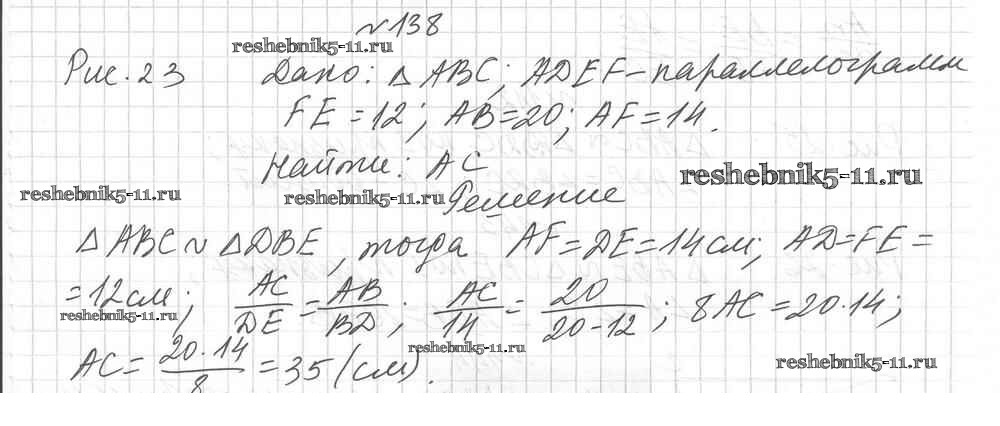 №138
reshebnik5-11.ru
Рис. 23 Дано: △ABC; ADEF – параллелограмм
FE = 12; AB = 20; AF = 14.
Найти: AC
reshebnik5-11.ru
reshebnik5-11.ru reshebnik5-11.ru Решение
△ABC ~ △DBE, тогда AF = DE = 14 см; AD = FE =
= 12 см; AC/DE = AB/BD; AC/14 = 20/(20-12); 8AC = 20·14;
reshebnik5-11.ru reshebnik5-11.ru
AC = 20·14/8 = 35 (см).
reshebnik5-11.ru